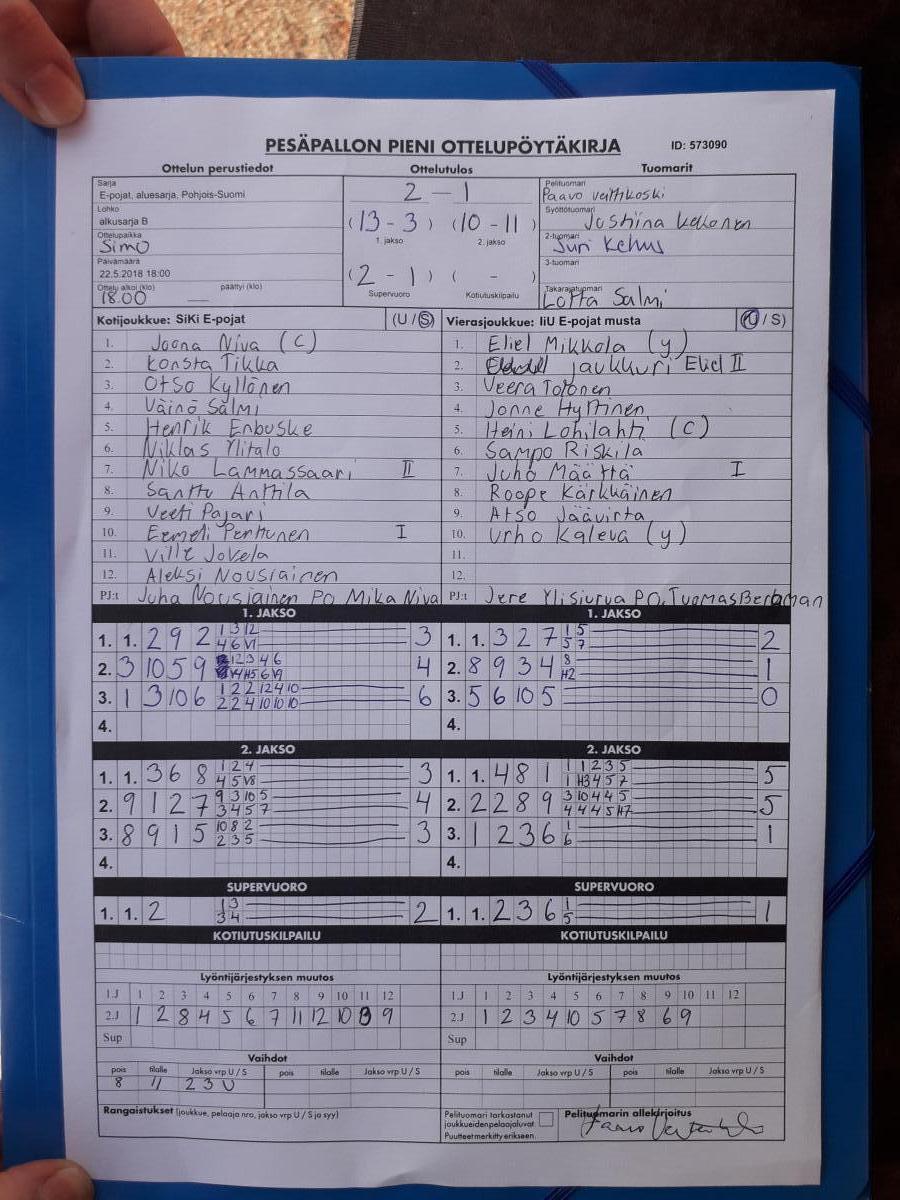 PESÄPALLON PIENI OTTELUPÖYTÄKIRJA ID: 573090
Ottelun perustiedot Ottelutulos Tuomarit
Sarja
E-pojat, aluesarja, Pohjois-Suomi
Lohko
alkusarja B
Ottelupaikka
Simo
Päivämäärä
22.5.2018 18:00
Ottelu alkoi (klo) päättyi (klo)
18.00 —
2 - 1
(13 - 3) (10 - 11)
1. jakso 2. jakso
(2 - 1) ( - )
Supervuoro Kotiutuskilpailu
Pelituomari
Paavo
Syöttötuomari
Justiina Kekonen
2-tuomari
Juri Kehus
3-tuomari
Takarajatuomari
Lotta Salmi
Kotijoukkue: SiKi E-pojat (U / S)
1. Joona Niva (C)
2. Konsta Tikka
3. Otso Kyllönen
4. Väinö Salmi
5. Henrik Enbuske
6. Niklas Ylitalo
7. Niko Lammassaari II
8. Santtu Anttila
9. Veeti Pajari
10. Eemeli Perttunen I
11. Ville Jokela
12. Aleksi Nousiainen
PJ:t Juha Nousiainen PO Mika Niva
Vierasjoukkue: IiU E-pojat musta (U / S)
1. Eliel Mikkola (y)
2. Jaukkuri Eliel II
3. Veera Tolonen
4. Jonne Hyttinen
5. Heini Lohilahti (C)
6. Sampo Riskilä
7. Juho Määttä I
8. Roope Kärkkäinen
9. Atso Jäävirta
10. Urho Kaleva (y)
11.
12.
PJ:t Jere Ylisiurua PO, Tuomas Bergman
1. JAKSO 1. JAKSO
1. 1. 2 9 2 1 3 12 3 1. 1. 3 2 7 1 5 2
4 6 V1 5 7
2. 3 10 5 9 1 2 3 4 6 4 2. 8 9 3 4 8 1
V4 H5 6 V9 H2
3. 1 3 10 6 1 2 2 12 4 10 6 3. 5 6 10 5 0
2 2 4 10 10 10
4. 4.
2. JAKSO 2. JAKSO
1. 1. 3 6 8 1 2 4 3 1. 1. 4 8 1 1 1 2 3 5 5
4 5 V8 1 H3 4 5 7
2. 9 1 2 7 9 3 10 5 4 2. 2 2 8 9 3 10 4 4 5 5
3 4 5 7 4 4 4 5 H7
3. 8 9 1 5 10 8 2 3 3. 1 2 3 6 1 1
2 3 5 6
4. 4.
SUPERVUORO SUPERVUORO
1. 1. 2 1 3 2 1. 1. 2 3 6 1 1
3 4 5
KOTIUTUSKILPAILU KOTIUTUSKILPAILU
Lyöntijärjestyksen muutos Lyöntijärjestyksen muutos
1.J 1 2 3 4 5 6 7 8 9 10 11 12 1.J 1 2 3 4 5 6 7 8 9 10 11 12
2.J 1 2 8 4 5 6 7 11 12 10 3 9 2.J 1 2 3 4 10 5 7 8 6 9
Sup Sup
Vaihdot Vaihdot
pois tilalle Jakso vrp U / S pois tilalle Jakso vrp U / S pois tilalle Jakso vrp U / S pois tilalle Jakso vrp U / S
8 11 2 3 U
Rangaistukset (joukkue, pelaaja nro, jakso vrp U / S ja syy)
Pelituomari tarkastanut
joukkueiden pelaajaluvat.
Puutteet merkitty erikseen.
Pelituomarin allekirjoitus